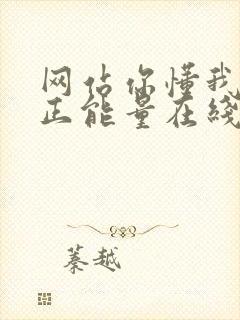 网站你懂我
正能量在线
蓁越